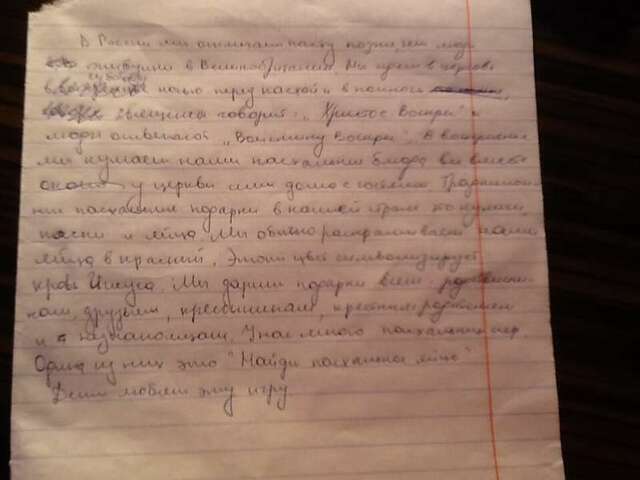 В России мы отмечаем пасху позже, чем люди
живущие в Великобритании. Мы идем в церковь
в субботу ночью перед пасхой и в полночь
священник говорит: „Христос Воскрес" и
люди отвечают „Воистину Воскрес". В воскресенье
мы кушаем наши пасхальные блюда все вместе
у церкви или дома с семьей. Традиционные
пасхальные подарки в нашей стране то куличи,
пасхи и яйца. Мы обычно раскрашиваем наши
яйца в красный. Этот цвет символизирует
кровь Иисуса. Мы дарим подарки всем родственни-
кам, друзьям, крестникам, крестным родителям
и знакомым. У нас много пасхальных игр.
Одна из них это "Найди пасхальное яйцо"
Дети любят эту игру.